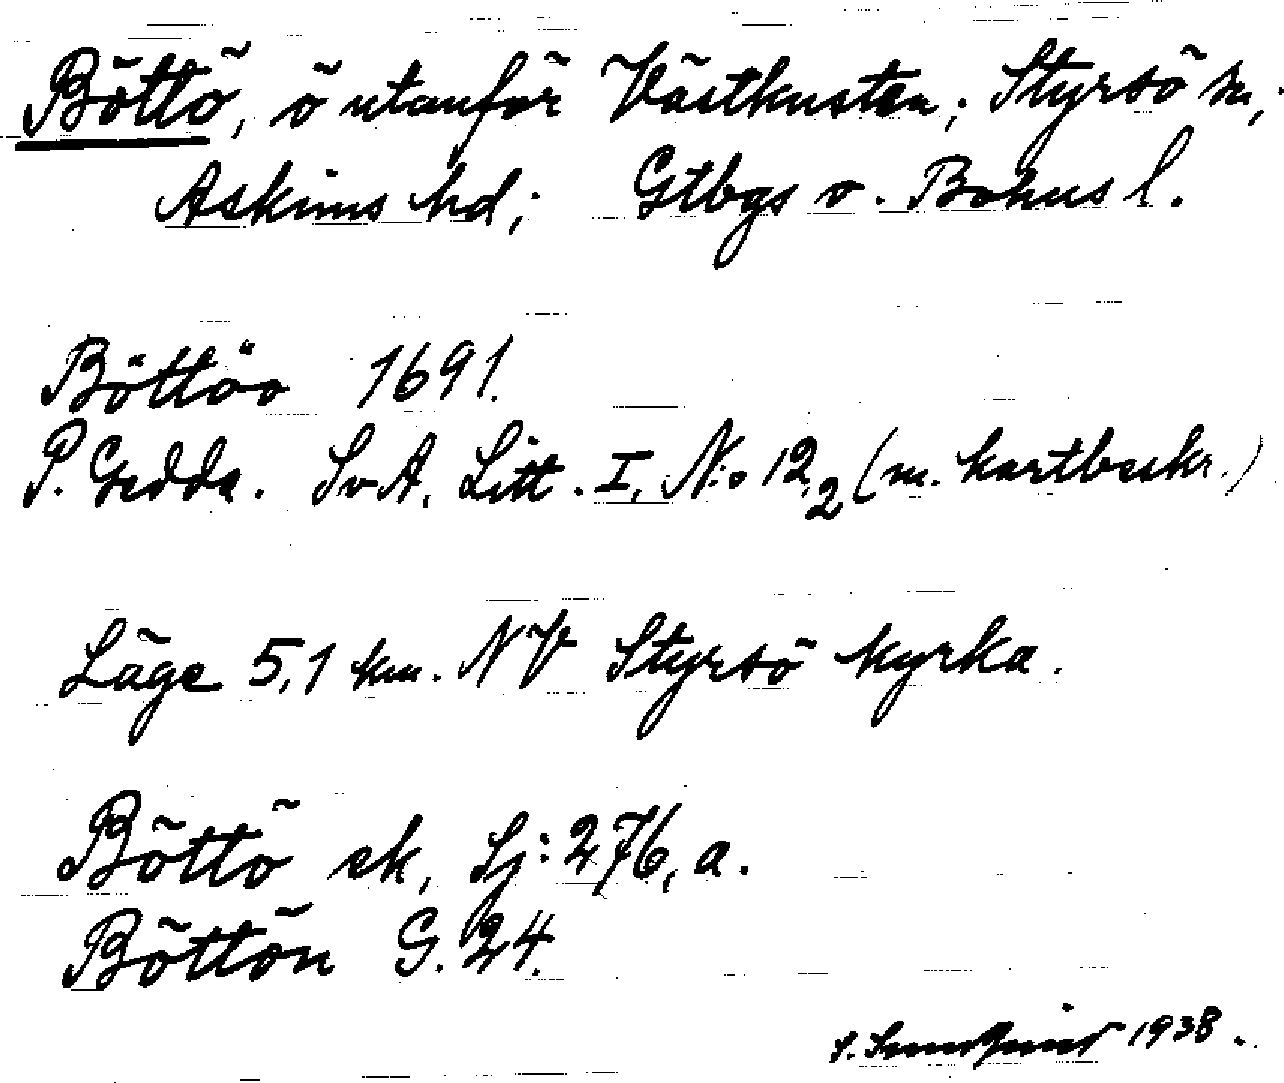 Böttö, ö utanför Västkusten; Styrsö sn,
Askims hd; Gtbgs o. Bohus l.
Böttöo 1691.
P. Gedda. SvA. Litt. I, N:o 12,2 (m. kartbeskr.)
Läge 5,1 km. NV Styrsö kyrka.
Böttö ek, Sj: 276, a.
Böttön G. 24.
1938.